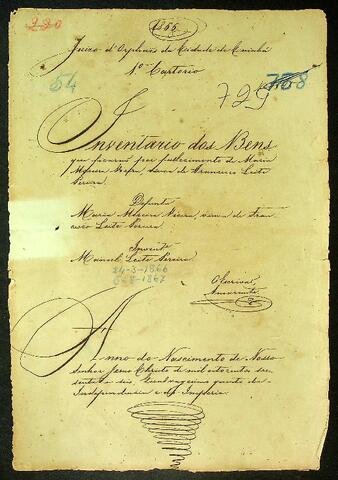 1866
220
Juizo d'Orphãos da Cidade de Cuiabá
54
1º Cartorio
729
788
Inventario dos Bens
que ficarão por fallecimento de Maria
Moreira viuva de Francisco Leite
Pereira
Defunta
Maria Moreira Vieira, viuva de Fran
cisco Leite Pereira
Invente
Manoel Leite Pereira
24-3-1866
6-8-1867
O Escrivão
Anno do Nascimento de Nosso
Senhor Jesus Christo de mil oitocentos ses
senta e seis, quadragesimo quinto da
Independencia e do Imperio